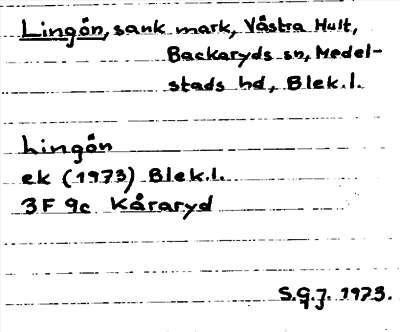 Lingön, sank mark, Västra Hult,
Backaryds sn, Medel-
stads hd, Blek.l.
Lingön
ek (1973) Blek.l.
3F 9c Kåraryd
S.G.J. 1973.